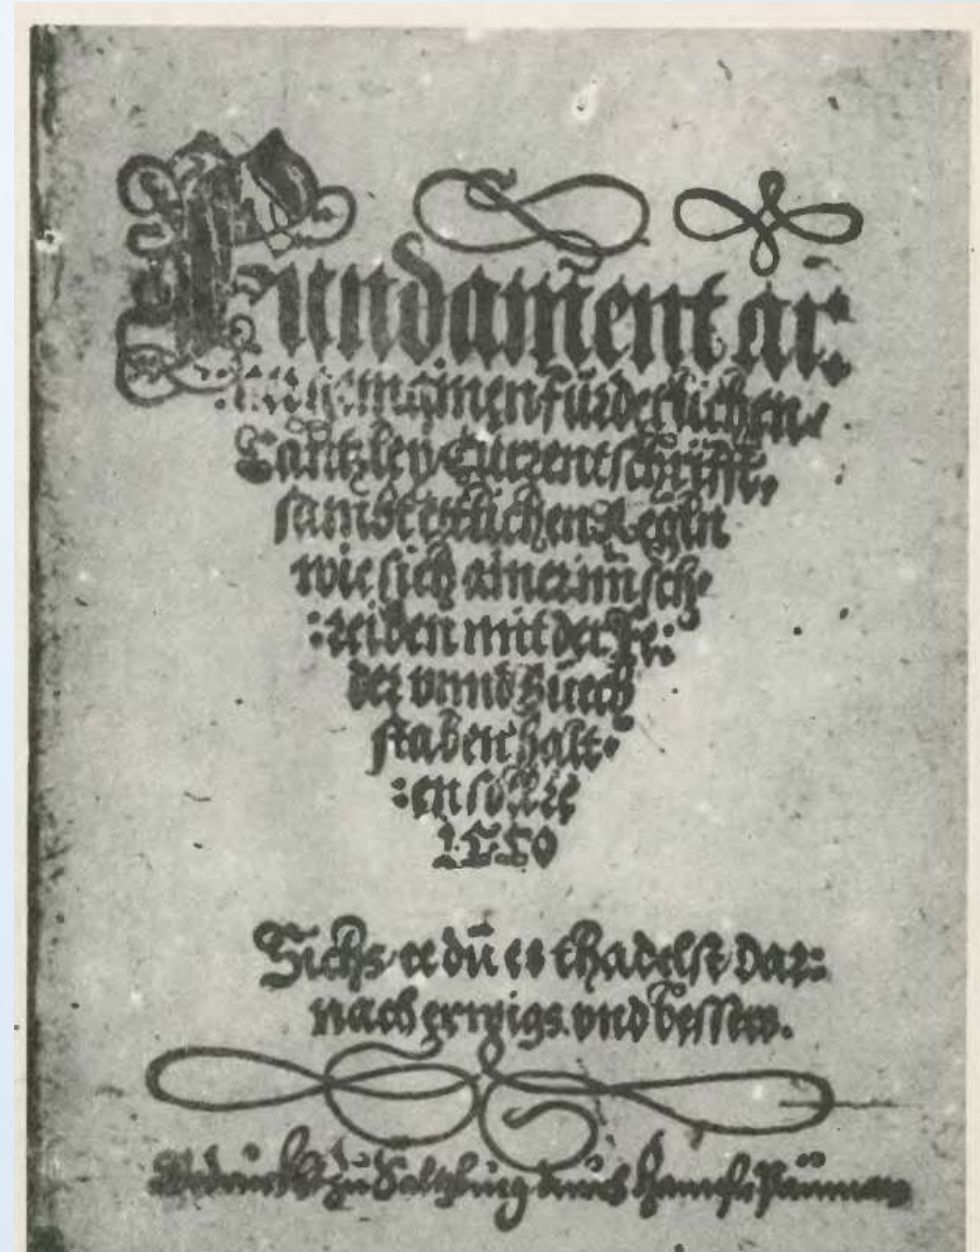 Fundament ar:
gemainen fürderlichen
Cantzley Currentschrifft,
sambt etlichen Regln
wie sich ainer im sch:
:reiben mit der Fe:
der vnnd Buech
staben halt:
:en sölle
1550
Sichs ee dū es thadelst Dar:
nach erwigs vnd besser.
Gedruckt zu Saltzburg durch Hannsn Pauman